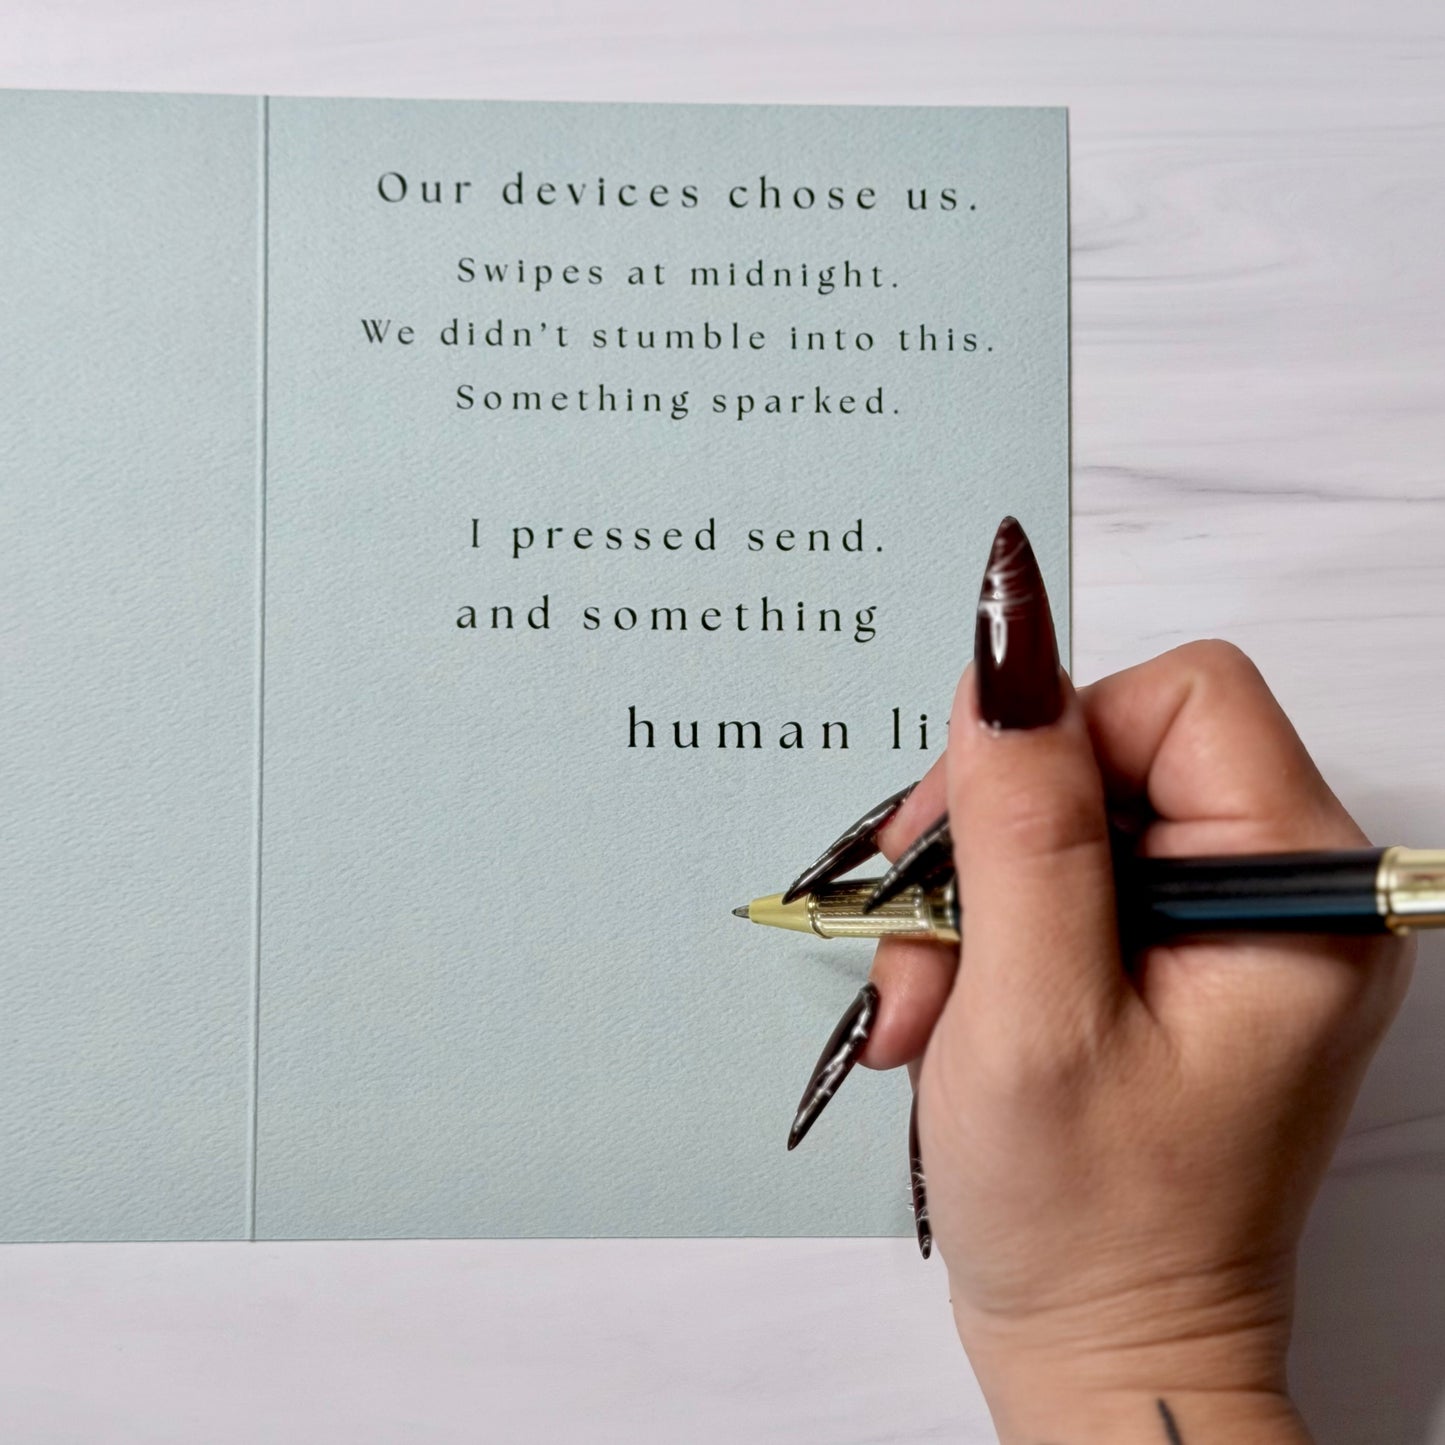 Our devices chose us.
Swipes at midnight.
We didn’t stumble into this.
Something sparked.
I pressed send.
and something
human